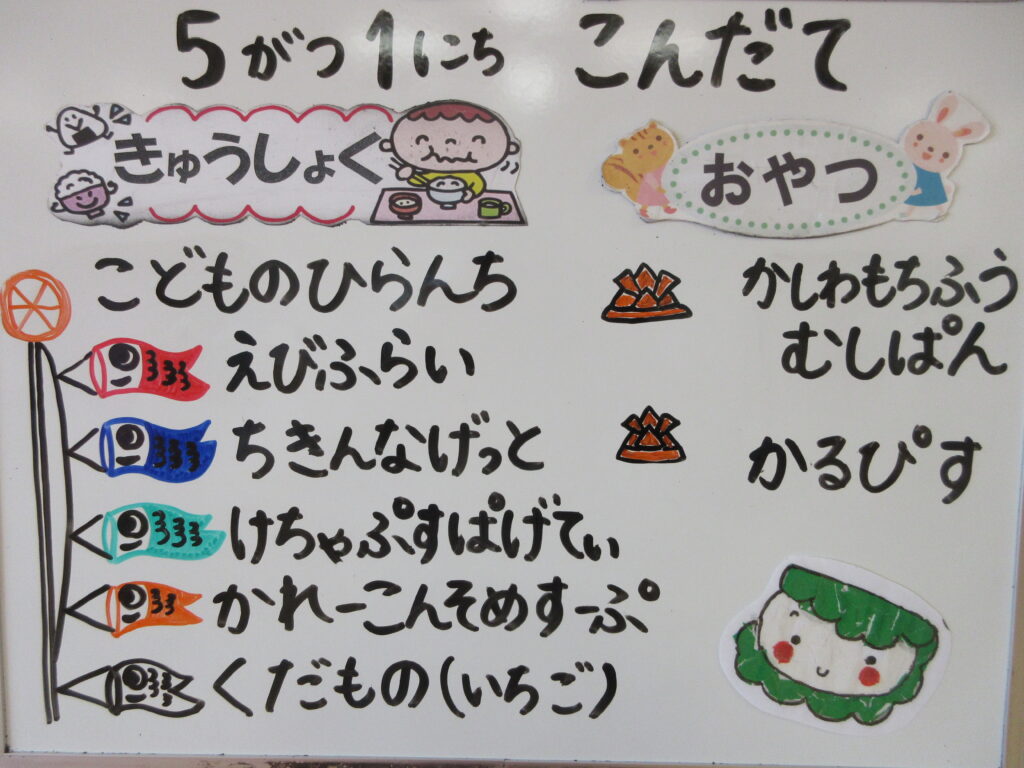 5がつ1にち こんだて
きゅうしょく
こどものひらんち
えびふらい
ちきんなげっと
けちゃぷすぱげてぃ
かれーこんそめすーぷ
くだもの(いちご)
おやつ
かしわもちふう
むしぱん
かるぴす